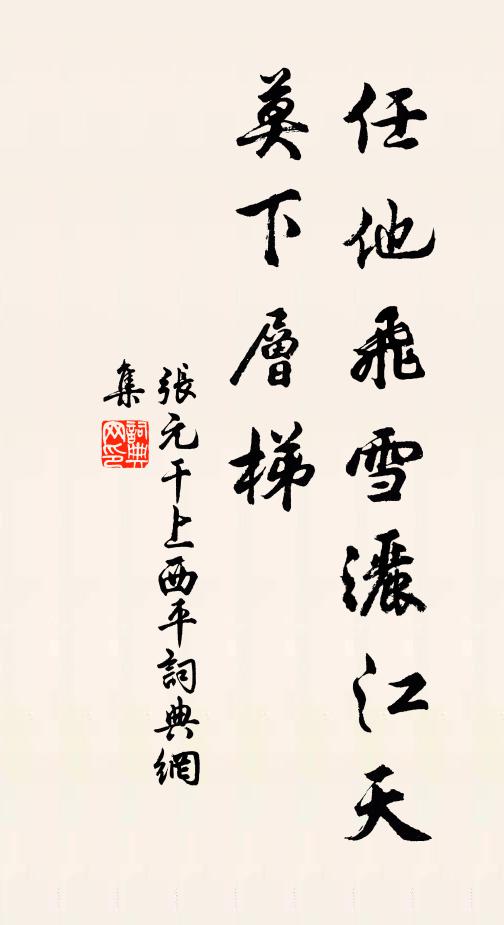 任他飛雪灑江天
莫下層梯
張元干上西平詞典網
集
詞典網印